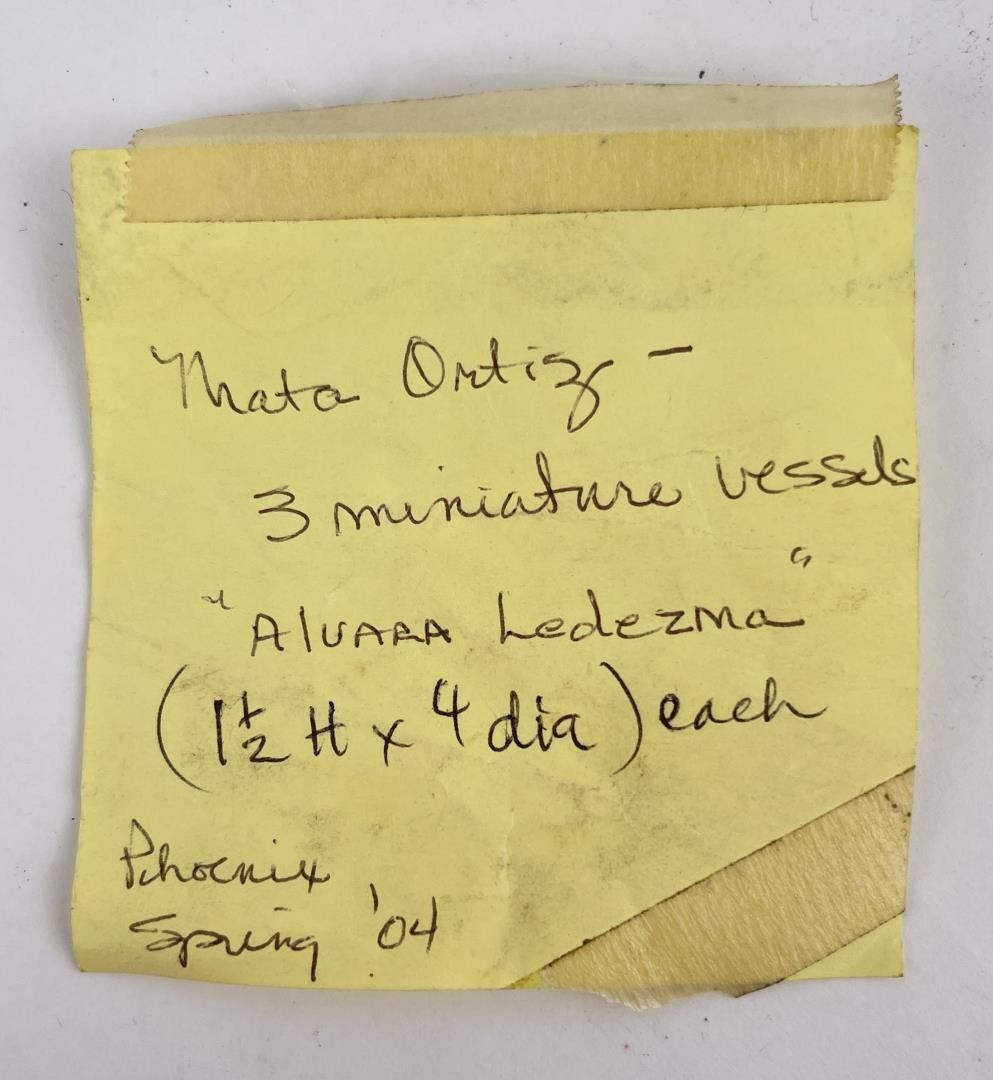 Mata Ortiz –
3 miniature vessels
"Alvara Ledezma"
(1½ H x 4 dia) each
Phoenix
Spring '04